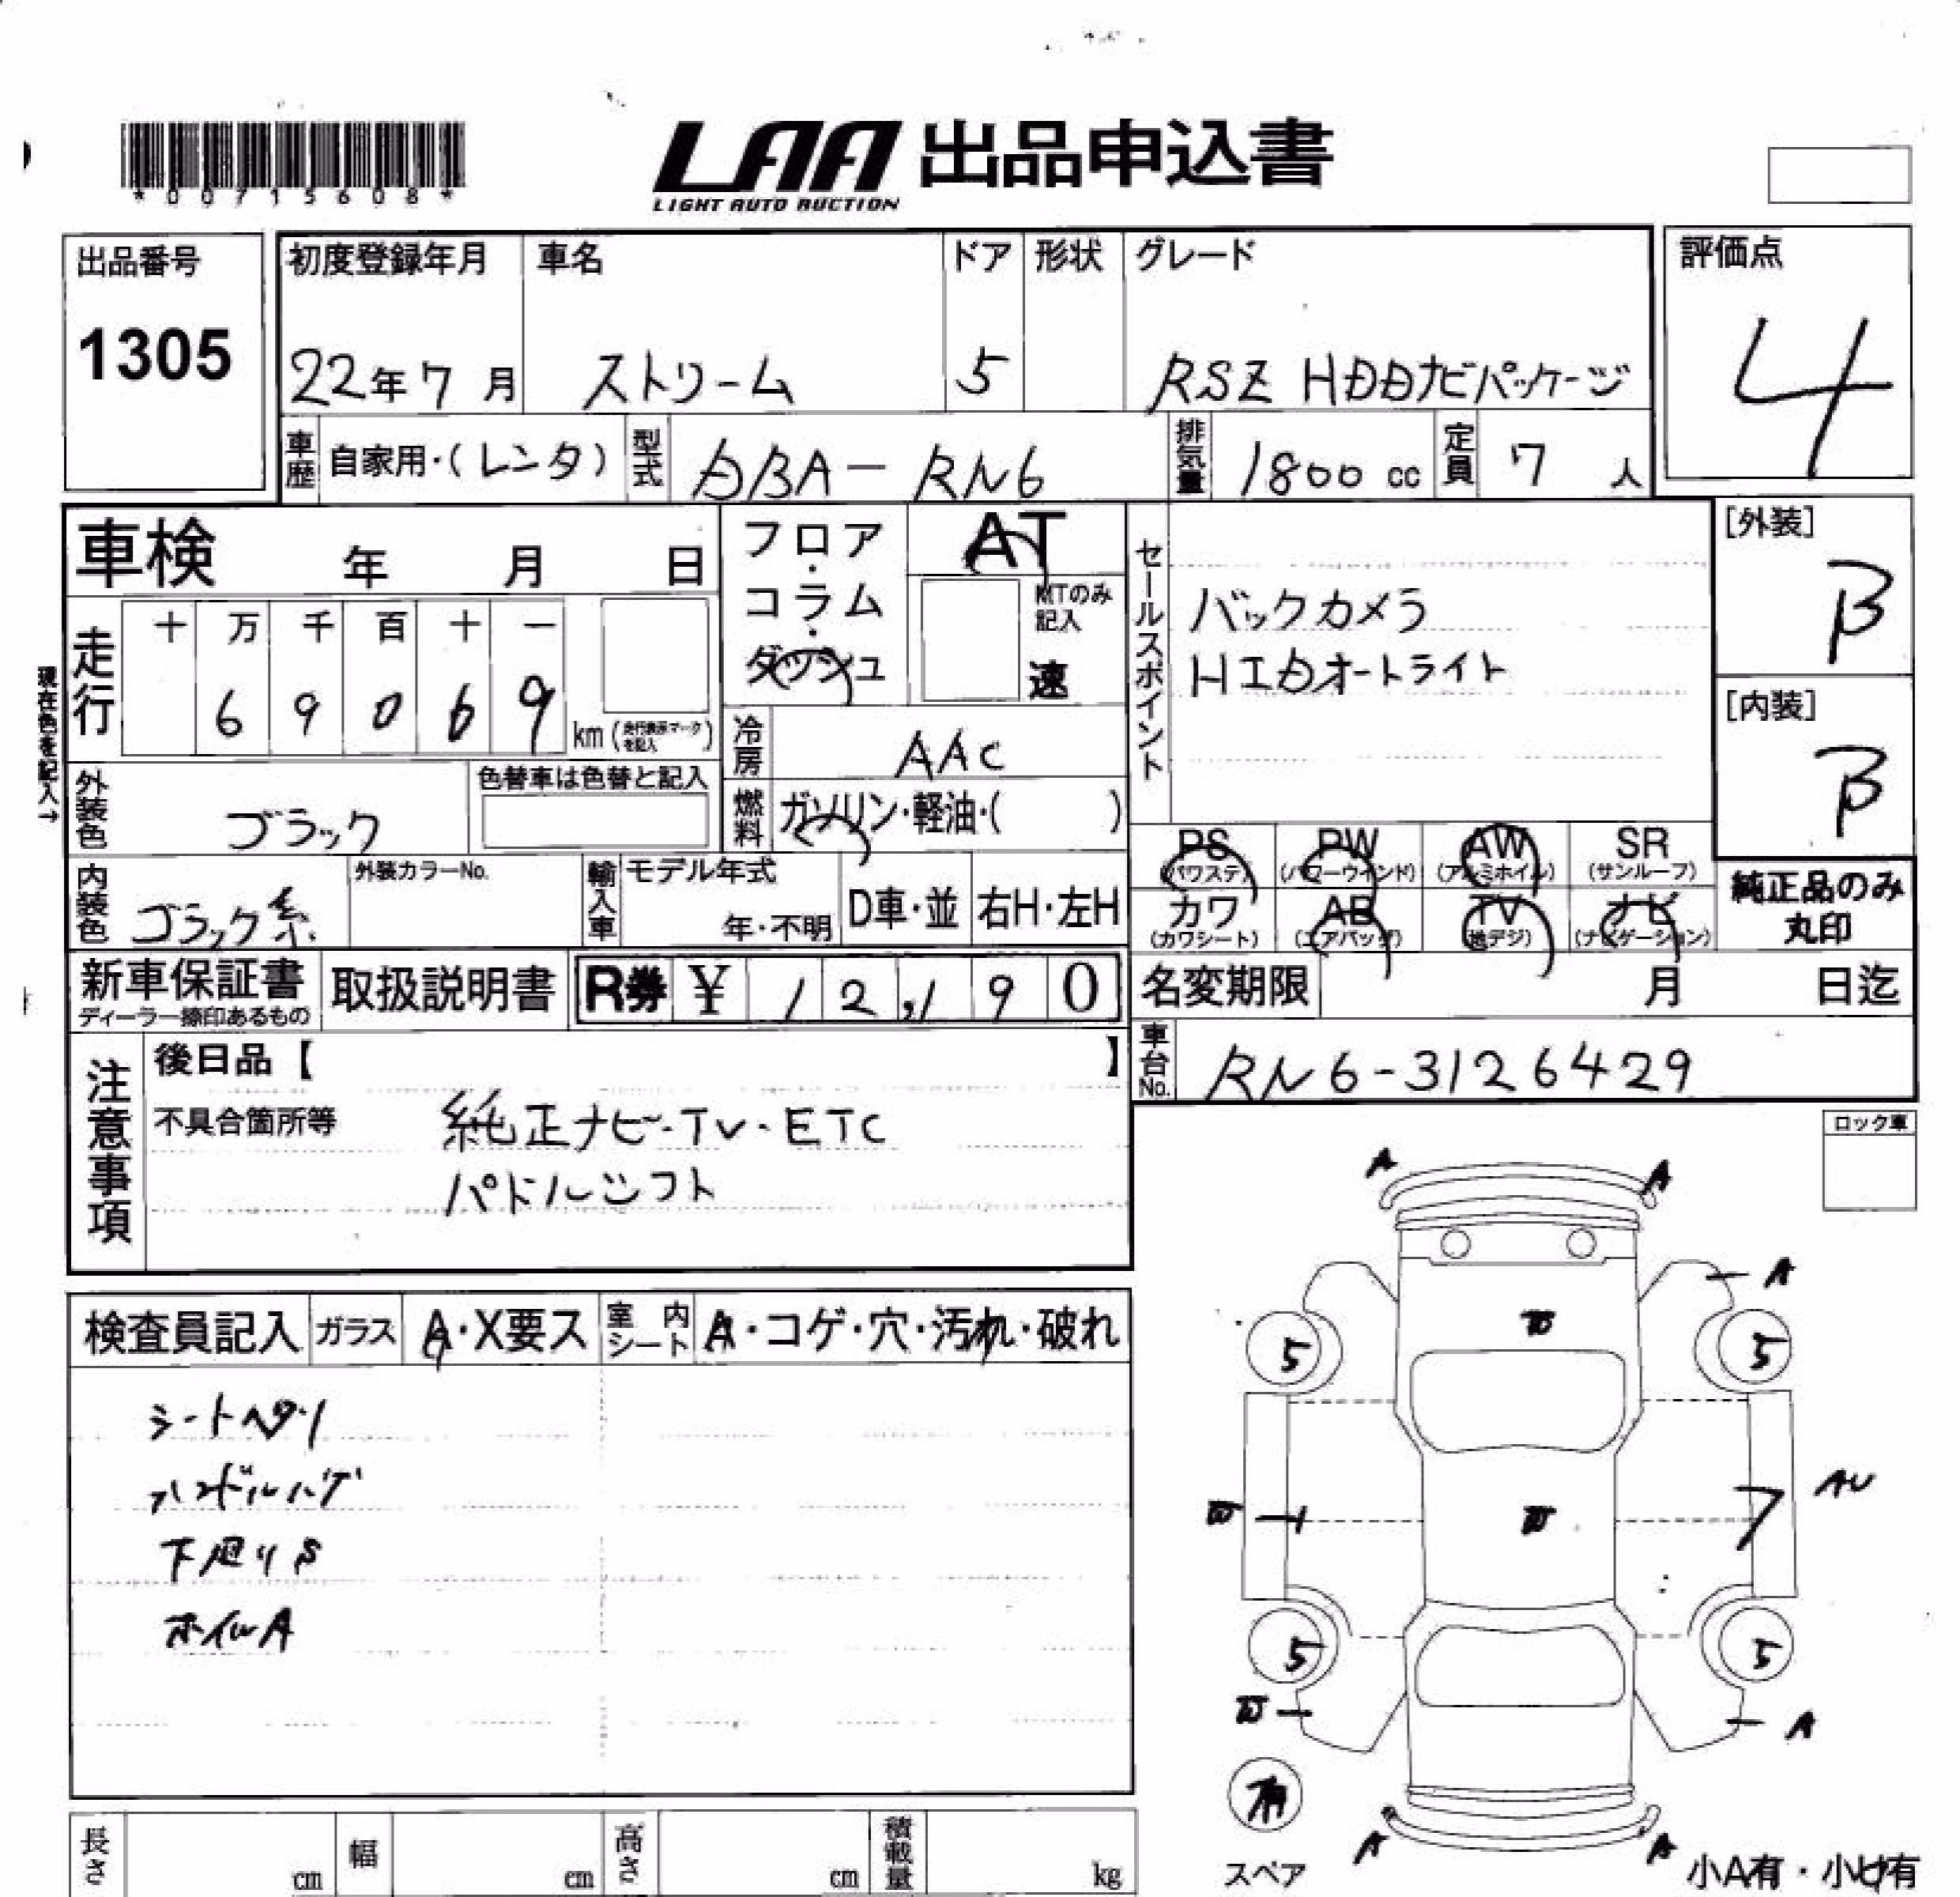 *00715608*
LAA 出品申込書
LIGHT AUTO AUCTION
出品番号
1305
初度登録年月 車名 ドア 形状 グレード
22年7月 ストリーム 5 RSZ HDDナビパッケージ
評価点
4
車歴 自家用・(レンタ) 型式 DBA-RN6 排気量 1800cc 定員 7人
車検 年 月 日
フロア・コラム・ダッシュ
AT
MTのみ記入
速
セールスポイント
バックカメラ
HIDオートライト
[外装]
B
[内装]
B
現在色を記入→
走行 十 万 千 百 十 一
6 9 0 6 9 km (走行表示マークを記入)
冷房 AAC
外装色 ブラック 色替車は色替と記入
燃料 ガソリン・軽油・( )
内装色 ブラック系 外装カラーNo.
輸入車 モデル年式 年・不明 D車・並 右H・左H
PS (パワステ) PW (パワーウインド) AW (アルミホイル) SR (サンルーフ)
カワ (カワシート) AB (エアバッグ) TV (地デジ) ナビ (ナビゲーション)
純正品のみ丸印
新車保証書 ディーラー捺印あるもの 取扱説明書 R券 ¥ 12,190
名変期限 月 日迄
車台No. RN6-3126429
注意事項
後日品【 】
不具合箇所等 純正ナビ・TV・ETC
パドルシフト
ロック車
検査員記入 ガラス A・X要ス 室内シート A・コゲ・穴・汚れ・破れ
シートヘタリ
ハンドルハゲ
下廻りS
ホイルA
A A
A
W
5 5
W W AU
5 5
W A
有
スペア
A A
小A有・小U有
長さ cm 幅 cm 高さ cm 積載量 kg